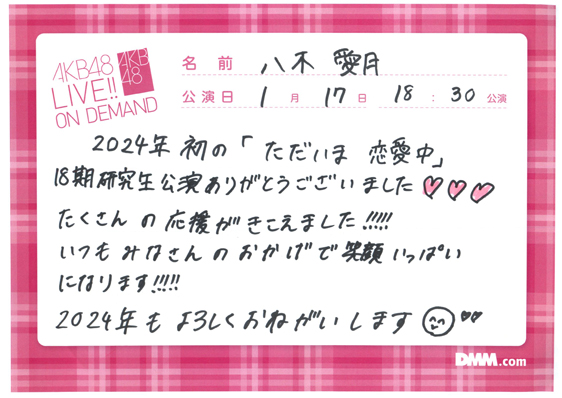 AKB48
LIVE!!
ON DEMAND
AKB
48
名前 八木 愛月
公演日 1月 17日 18:30公演
2024年 初の「ただいま 恋愛中」
18期研究生公演ありがとうございました♡♡♡
たくさんの応援がきこえました!!!!!
いつもみなさんのおかげで笑顔いっぱい
になります!!!!!
2024年もよろしくおねがいします
DMM.com